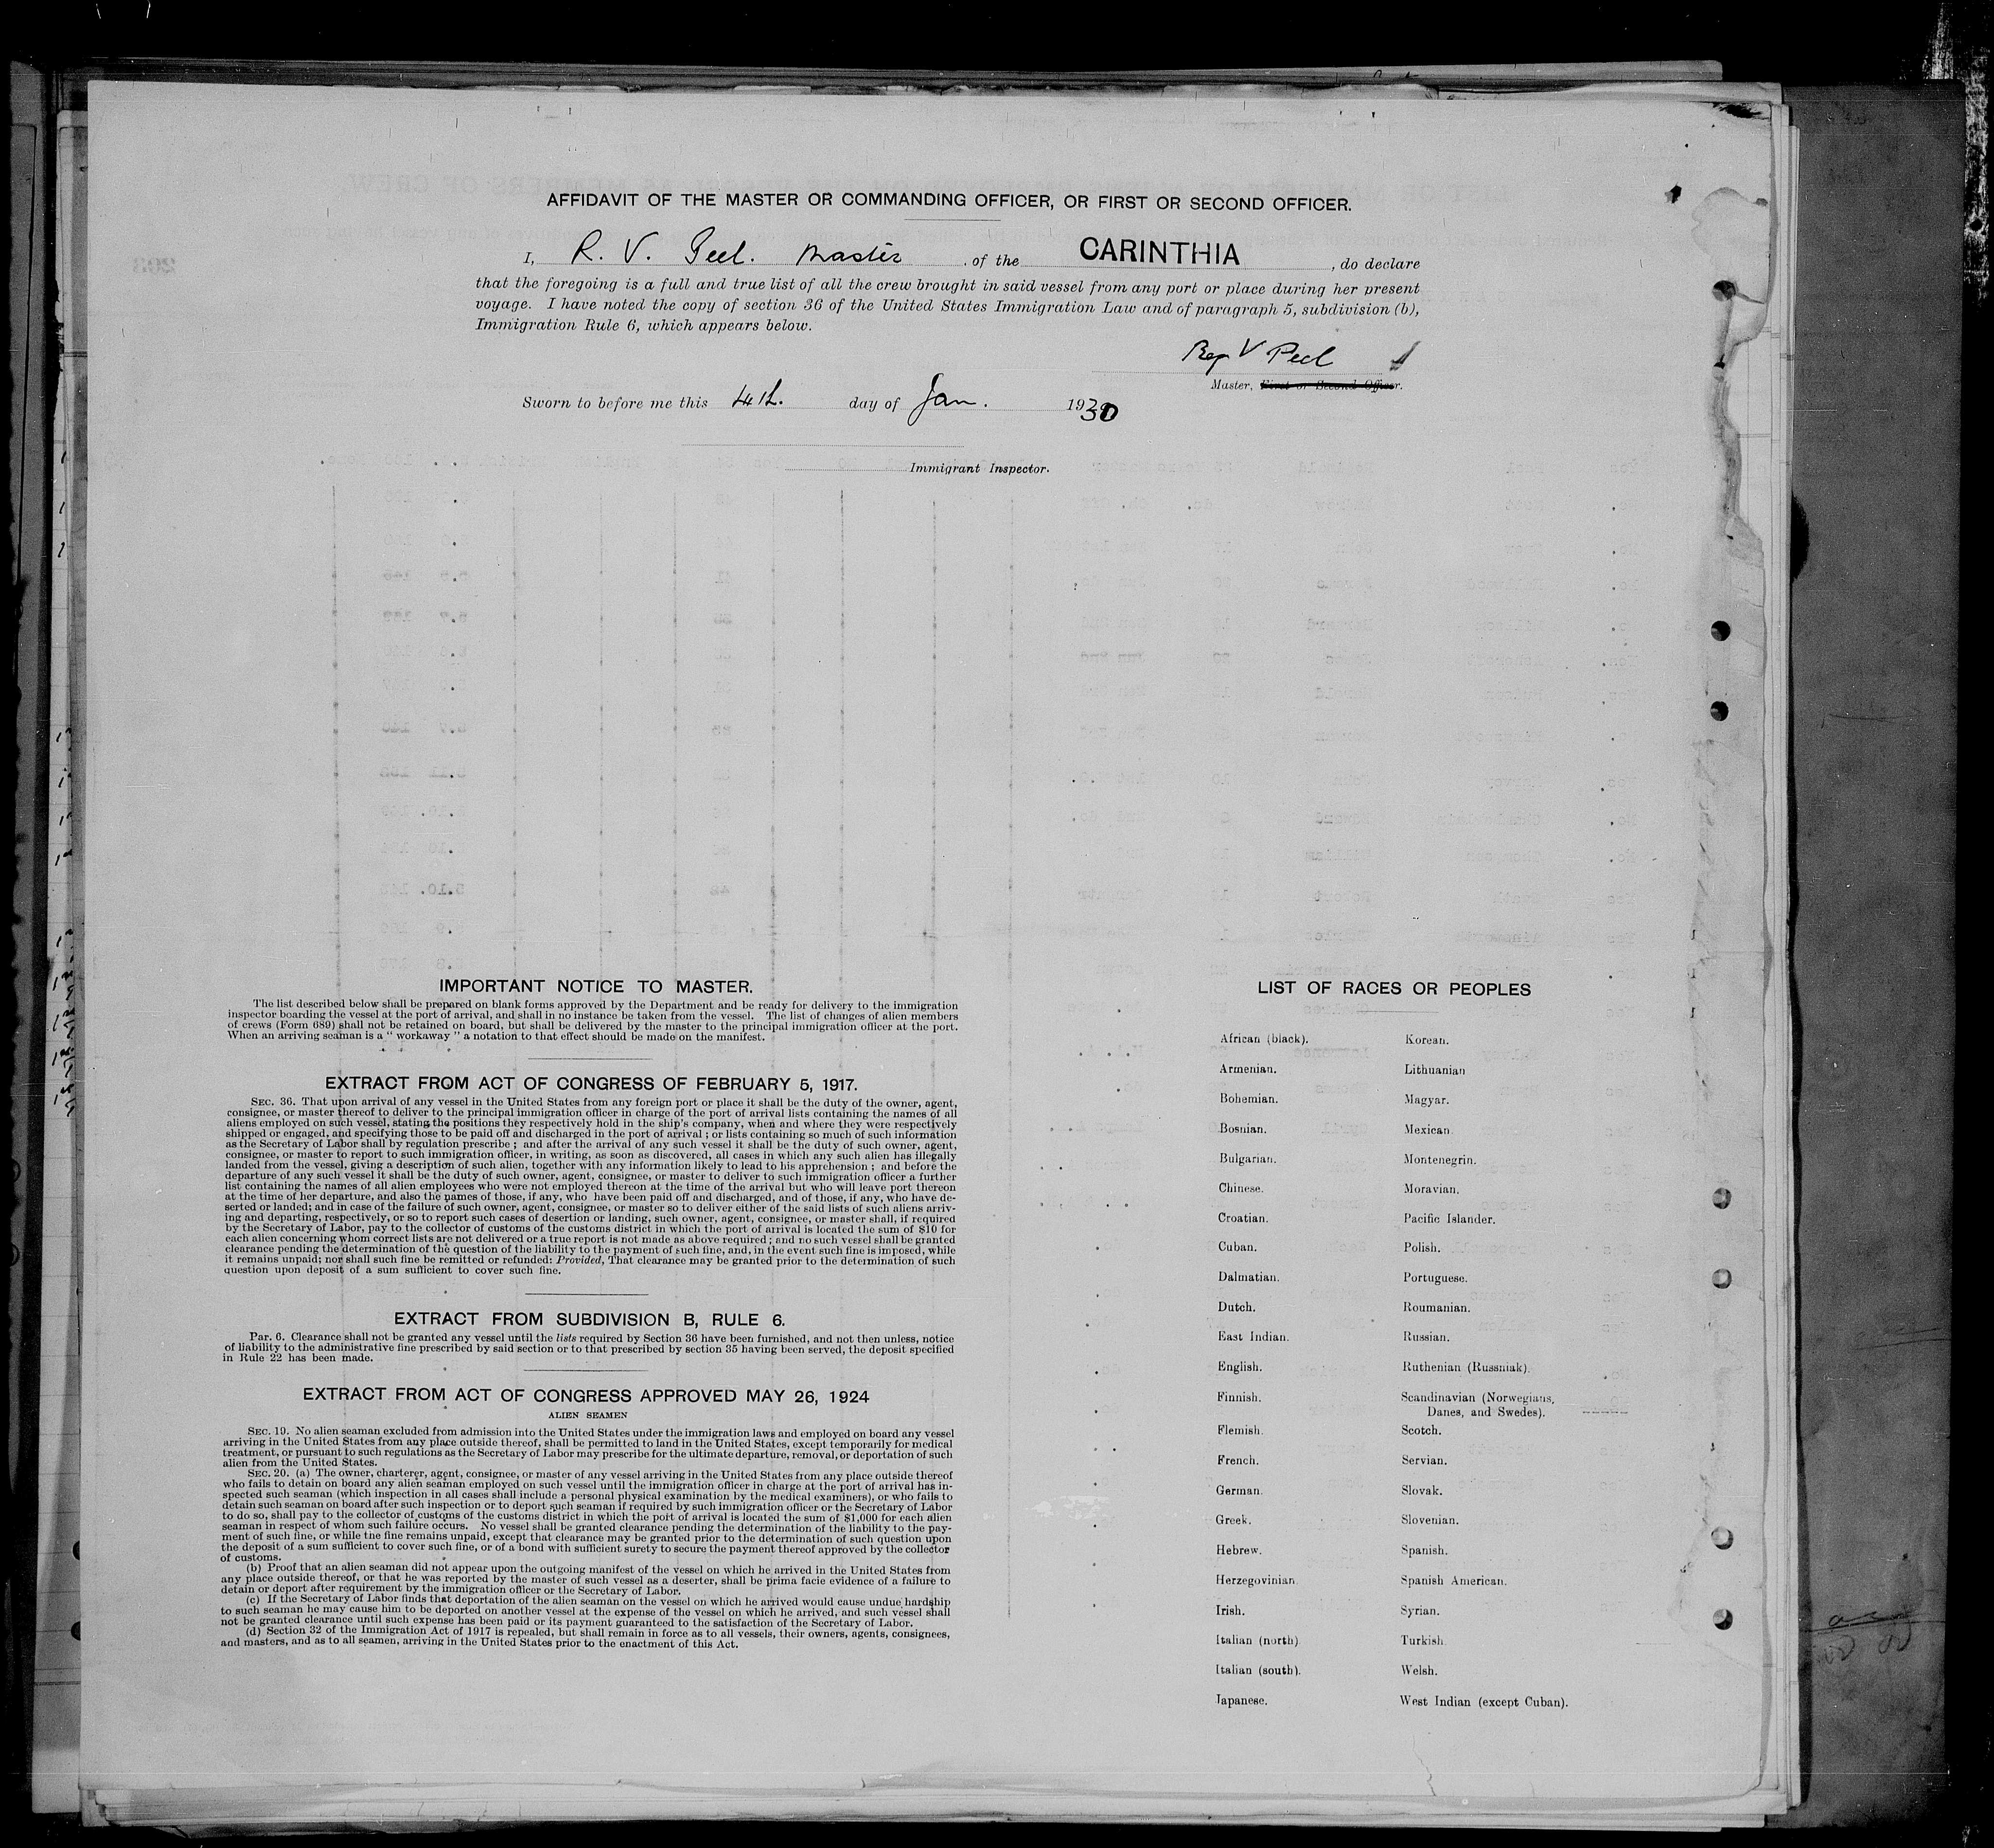 AFFIDAVIT OF THE MASTER OR COMMANDING OFFICER, OR FIRST OR SECOND OFFICER.
I, R. V. Peel. Master of the CARINTHIA, do declare
that the foregoing is a full and true list of all the crew brought in said vessel from any port or place during her present
voyage. I have noted the copy of section 36 of the United States Immigration Law and of paragraph 5, subdivision (b),
Immigration Rule 6, which appears below.
Reg V Peel
Master, First or Second Officer.
Sworn to before me this 4th. day of Jan. 1930
Immigrant Inspector.
IMPORTANT NOTICE TO MASTER.
The list described below shall be prepared on blank forms approved by the Department and be ready for delivery to the immigration
inspector boarding the vessel at the port of arrival, and shall in no instance be taken from the vessel. The list of changes of alien members
of crews (Form 689) shall not be retained on board, but shall be delivered by the master to the principal immigration officer at the port.
When an arriving seaman is a " workaway " a notation to that effect should be made on the manifest.
EXTRACT FROM ACT OF CONGRESS OF FEBRUARY 5, 1917.
SEC. 36. That upon arrival of any vessel in the United States from any foreign port or place it shall be the duty of the owner, agent,
consignee, or master thereof to deliver to the principal immigration officer in charge of the port of arrival lists containing the names of all
aliens employed on such vessel, stating the positions they respectively hold in the ship's company, when and where they were respectively
shipped or engaged, and specifying those to be paid off and discharged in the port of arrival ; or lists containing so much of such information
as the Secretary of Labor shall by regulation prescribe ; and after the arrival of any such vessel it shall be the duty of such owner, agent,
consignee, or master to report to such immigration officer, in writing, as soon as discovered, all cases in which any such alien has illegally
landed from the vessel, giving a description of such alien, together with any information likely to lead to his apprehension ; and before the
departure of any such vessel it shall be the duty of such owner, agent, consignee, or master to deliver to such immigration officer a further
list containing the names of all alien employees who were not employed thereon at the time of the arrival but who will leave port thereon
at the time of her departure, and also the names of those, if any, who have been paid off and discharged, and of those, if any, who have de-
serted or landed; and in case of the failure of such owner, agent, consignee, or master so to deliver either of the said lists of such aliens arriv-
ing and departing, respectively, or so to report such cases of desertion or landing, such owner, agent, consignee, or master shall, if required
by the Secretary of Labor, pay to the collector of customs of the customs district in which the port of arrival is located the sum of $10 for
each alien concerning whom correct lists are not delivered or a true report is not made as above required ; and no such vessel shall be granted
clearance pending the determination of the question of the liability to the payment of such fine, and, in the event such fine is imposed, while
it remains unpaid; nor shall such fine be remitted or refunded: Provided, That clearance may be granted prior to the determination of such
question upon deposit of a sum sufficient to cover such fine.
EXTRACT FROM SUBDIVISION B, RULE 6.
Par. 6. Clearance shall not be granted any vessel until the lists required by Section 36 have been furnished, and not then unless, notice
of liability to the administrative fine prescribed by said section or to that prescribed by section 35 having been served, the deposit specified
in Rule 22 has been made.
EXTRACT FROM ACT OF CONGRESS APPROVED MAY 26, 1924
ALIEN SEAMEN
SEC. 19. No alien seaman excluded from admission into the United States under the immigration laws and employed on board any vessel
arriving in the United States from any place outside thereof, shall be permitted to land in the United States, except temporarily for medical
treatment, or pursuant to such regulations as the Secretary of Labor may prescribe for the ultimate departure, removal, or deportation of such
alien from the United States.
SEC. 20. (a) The owner, charterer, agent, consignee, or master of any vessel arriving in the United States from any place outside thereof
who fails to detain on board any alien seaman employed on such vessel until the immigration officer in charge at the port of arrival has in-
spected such seaman (which inspection in all cases shall include a personal physical examination by the medical examiners), or who fails to
detain such seaman on board after such inspection or to deport such seaman if required by such immigration officer or the Secretary of Labor
to do so, shall pay to the collector of customs of the customs district in which the port of arrival is located the sum of $1,000 for each alien
seaman in respect of whom such failure occurs. No vessel shall be granted clearance pending the determination of the liability to the pay-
ment of such fine, or while the fine remains unpaid, except that clearance may be granted prior to the determination of such question upon
the deposit of a sum sufficient to cover such fine, or of a bond with sufficient surety to secure the payment thereof approved by the collector
of customs.
(b) Proof that an alien seaman did not appear upon the outgoing manifest of the vessel on which he arrived in the United States from
any place outside thereof, or that he was reported by the master of such vessel as a deserter, shall be prima facie evidence of a failure to
detain or deport after requirement by the immigration officer or the Secretary of Labor.
(c) If the Secretary of Labor finds that deportation of the alien seaman on the vessel on which he arrived would cause undue hardship
to such seaman he may cause him to be deported on another vessel at the expense of the vessel on which he arrived, and such vessel shall
not be granted clearance until such expense has been paid or its payment guaranteed to the satisfaction of the Secretary of Labor.
(d) Section 32 of the Immigration Act of 1917 is repealed, but shall remain in force as to all vessels, their owners, agents, consignees,
and masters, and as to all seamen, arriving in the United States prior to the enactment of this Act.
LIST OF RACES OR PEOPLES
African (black).
Armenian.
Bohemian.
Bosnian.
Bulgarian.
Chinese.
Croatian.
Cuban.
Dalmatian.
Dutch.
East Indian.
English.
Finnish.
Flemish.
French.
German.
Greek.
Hebrew.
Herzegovinian.
Irish.
Italian (north).
Italian (south).
Japanese.
Korean.
Lithuanian
Magyar.
Mexican.
Montenegrin.
Moravian.
Pacific Islander.
Polish.
Portuguese.
Roumanian.
Russian.
Ruthenian (Russniak).
Scandinavian (Norwegians,
Danes, and Swedes).
Scotch.
Servian.
Slovak.
Slovenian.
Spanish.
Spanish American.
Syrian.
Turkish.
Welsh.
West Indian (except Cuban).